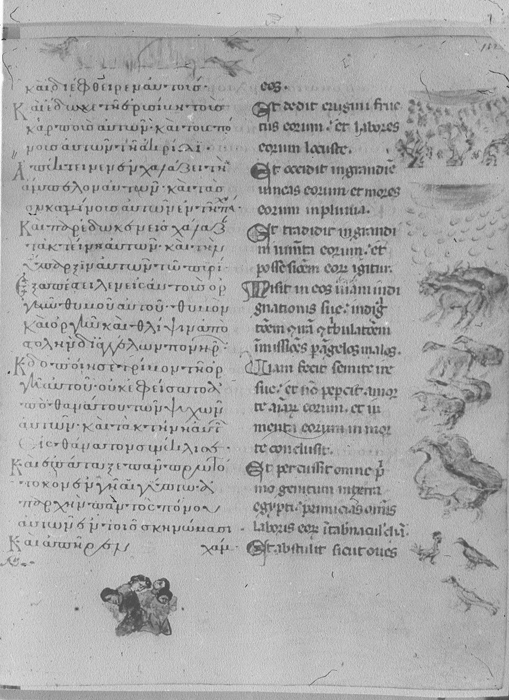 καὶ διέφθειρεν αυτους·
Καὶ εδωκε τη ερισίβη τους
καρπους αυτων· και τους πο
νους αυτων τη ακρίδι·
Απέκτεινεν εν χαλάζει την
αμπελον αυτων· και τας
συκαμίνους αυτων εν τη
Και παρέδωκεν εις χαλαζ
τα κτήνη αυτων· και την
ύπαρξιν αυτων τω πυρί
Εξαπέστειλεν εις αυτους ορ
γὴν θυμου αυτου· θυμὸν
και οργὴν και θλίψιν απο
στολὴν δι αγγέλων πονηρ
ωδοποίησε τρίβον τη ορ
γη αυτου ουκ εφείσατο
απο θανάτου των ψυχων
αυτων· και τα κτήνη αυτ
εις θανατον συνέκλεισε·
Και επάταξε παν πρωτο
τοκον εν γη αιγύπτω
απαρχην παντος πόνου
αυτων εν τοις σκηνώμασι
Και απηρεν χάμ·
eos.
Et dedit erugini fruc
tus eorum · et labores
eorum locuste.
Et occidit in grandine
uineas eorum et mores
eorum in pluuia.
Et tradidit in grandi
ni iumenta eorum. et
possessionem eor igitur.
Misit in eos iram indi
gnationis sue: indig
iram
immissiões p angelos malos.
Uiam fecit semite ire
sue: et nō pepcit a mor
te eorum. et iu
menta eorum in mor
te conclusit.
Et percussit omne p̄
mo genitum in terra
egypti: primicias omis
laboris eor ī tabnacul chā.
Et abstulit sicut oues